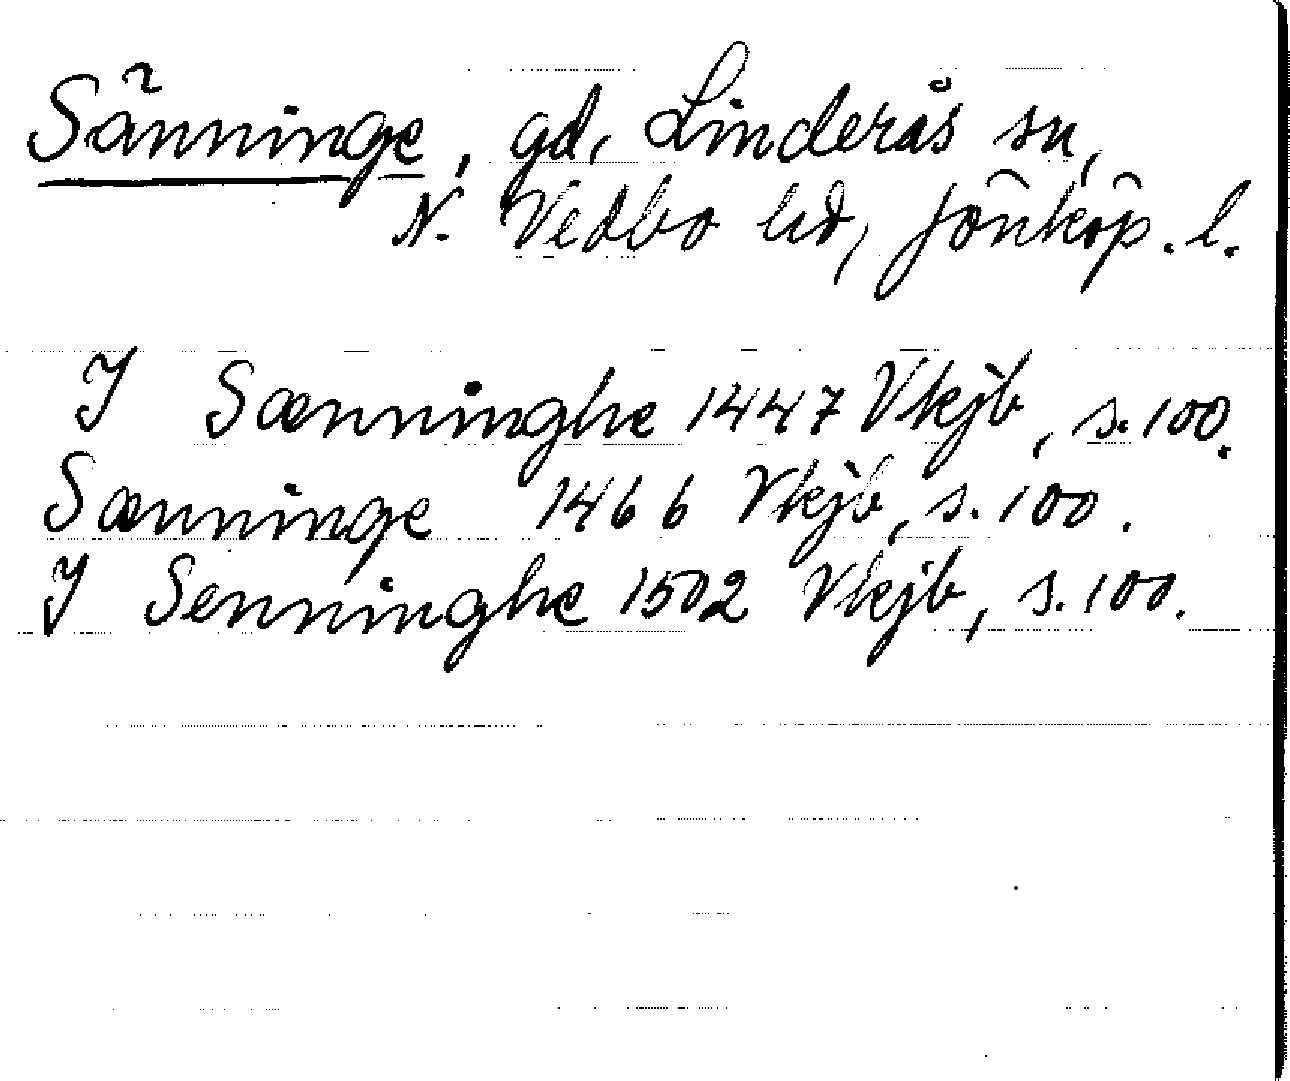 Sänninge, gd, Linderås sn,
N. Vedbo hd, Jönköp. l.
I Sænninghe 1447 Vkjb, s. 100.
Sænninge 1466 Vkjb, s. 100.
I Senninghe 1502 Vkjb, s. 100.